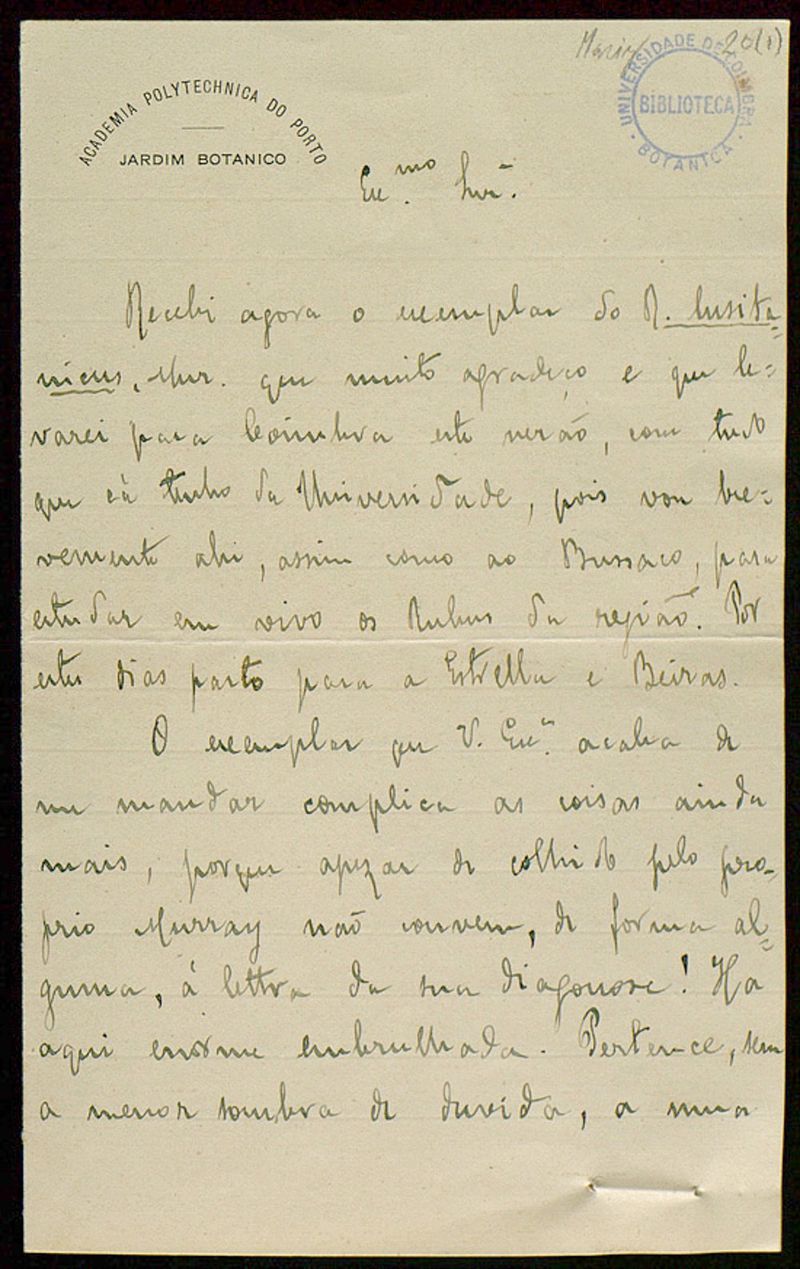 20(1)
UNIVERSIDADE DE COIMBRA
BIBLIOTECA
BOTANICA
ACADEMIA POLYTECHNICA DO PORTO
JARDIM BOTANICO
Ex.mo Snr.
Recebi agora o exemplar do R. lusita-
nicus, Mur. que muito agradeço e que le-
varei para Coimbra este verão, com tudo
que cá tenho da Universidade, pois vou bre-
vemente ahi, assim como ao Bussaco, para
estudar em vivo os Rubus da região. Por
estes dias parto para a Estrella e Beiras.
O exemplar que V. Exª. acaba de
me mandar complica as coisas ainda
mais, porque apezar de colhido pelo pro-
prio Murray não convem, de forma al-
guma, á lettra da sua diagonose! Ha
aqui enorme embrulhada. Pertence, sem
a menor sombra de duvida, a uma